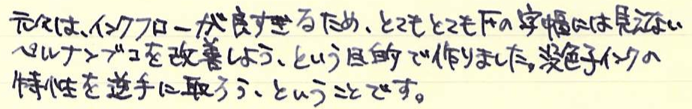 元々は、インクフローが良すぎるため、とてもとてもFの字幅には見えない
ペルナンブコを改善しよう、という目的で作りました。染色子インクの
特性を逆手に取ろう、ということです。